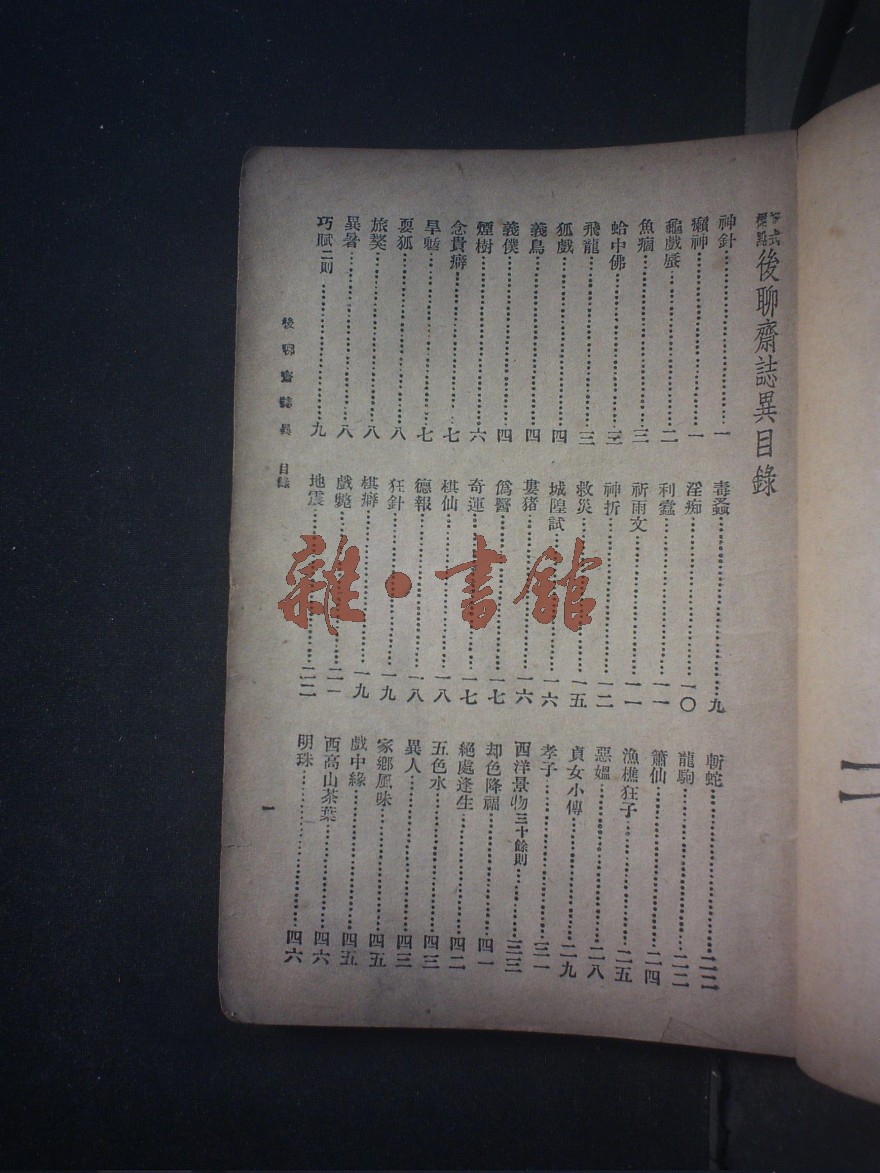 新式標點 後聊齋誌異目錄
神針……一
癩神……一
龜戲蜃……二
魚痾……三
蛤中佛……三
飛龍……三
狐戲……四
義鳥……四
義僕……四
煙樹……六
念貴癖……七
旱魃……七
耍狐……八
旅獒……八
異暑……八
巧賦二則……九
毒蝨……九
淫痴……一〇
利蠹……一一
祈雨文……一一
神折……一二
救災……一五
城隍試……一六
婁猪……一六
僞醫……一七
奇運……一七
棋仙……一八
德報……一八
狂針……一九
棋癖……一九
戲斃……二一
地震……二二
斬蛇……二二
龍駒……二二
簫仙……二四
漁樵狂子……二五
惡媼……二八
貞女小傳……二九
孝子……三一
西洋景物三十餘則……三三
却色降福……四一
絕處逢生……四二
五色水……四三
異人……四三
家鄉風味……四五
戲中緣……四五
西高山茶葉……四六
明珠……四六
後聊齋誌異 目錄
一
雜·書館
二